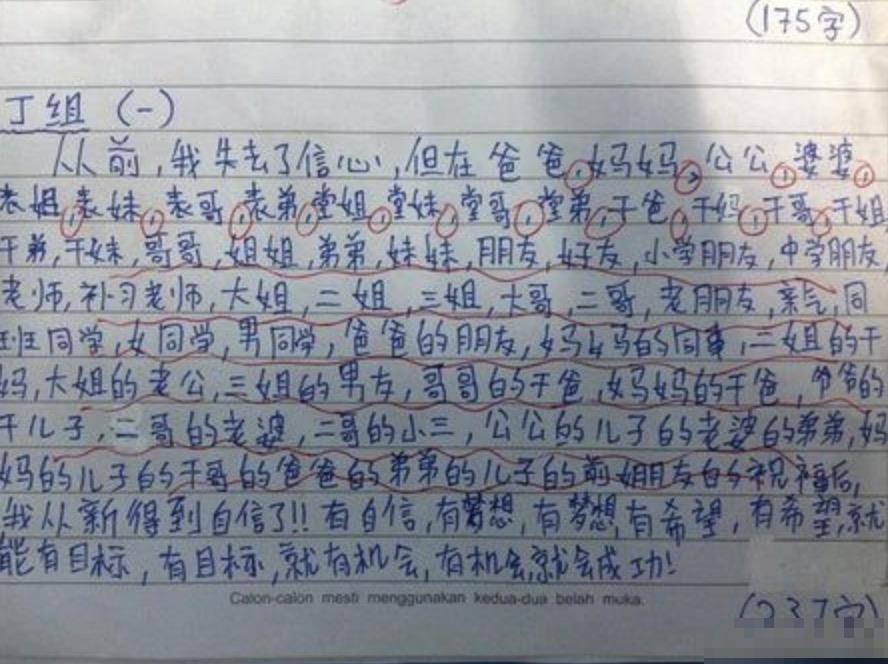 (175字)
丁组 (一)
从前,我失去了信心,但在爸爸,妈妈,公公,婆婆,
表姐,表妹,表哥,表弟,堂姐,堂妹,堂哥,堂弟,干爸,干妈,干哥,干姐,
干弟,干妹,哥哥,姐姐,弟弟,妹妹,朋友,好友,小学朋友,中学朋友,
老师,补习老师,大姐,二姐,三姐,大哥,二哥,老朋友,亲戚,同
班同学,女同学,男同学,爸爸的朋友,妈妈的同事,二姐的干
妈,大姐的老公,三姐的男友,哥哥的干爸,妈妈的干爸,爷爷的
干儿子,二哥的老婆,二哥的小三,公公的儿子的老婆的弟弟,妈
妈的儿子的干哥的爸爸的弟弟的儿子的前女朋友的祝福后,
我从新得到自信了!!有自信,有梦想,有梦想,有希望,有希望,就
能有目标,有目标,就有机会,有机会,就会成功!
Calon-calon mesti menggunakan kedua-dua belah muka.
(237字)